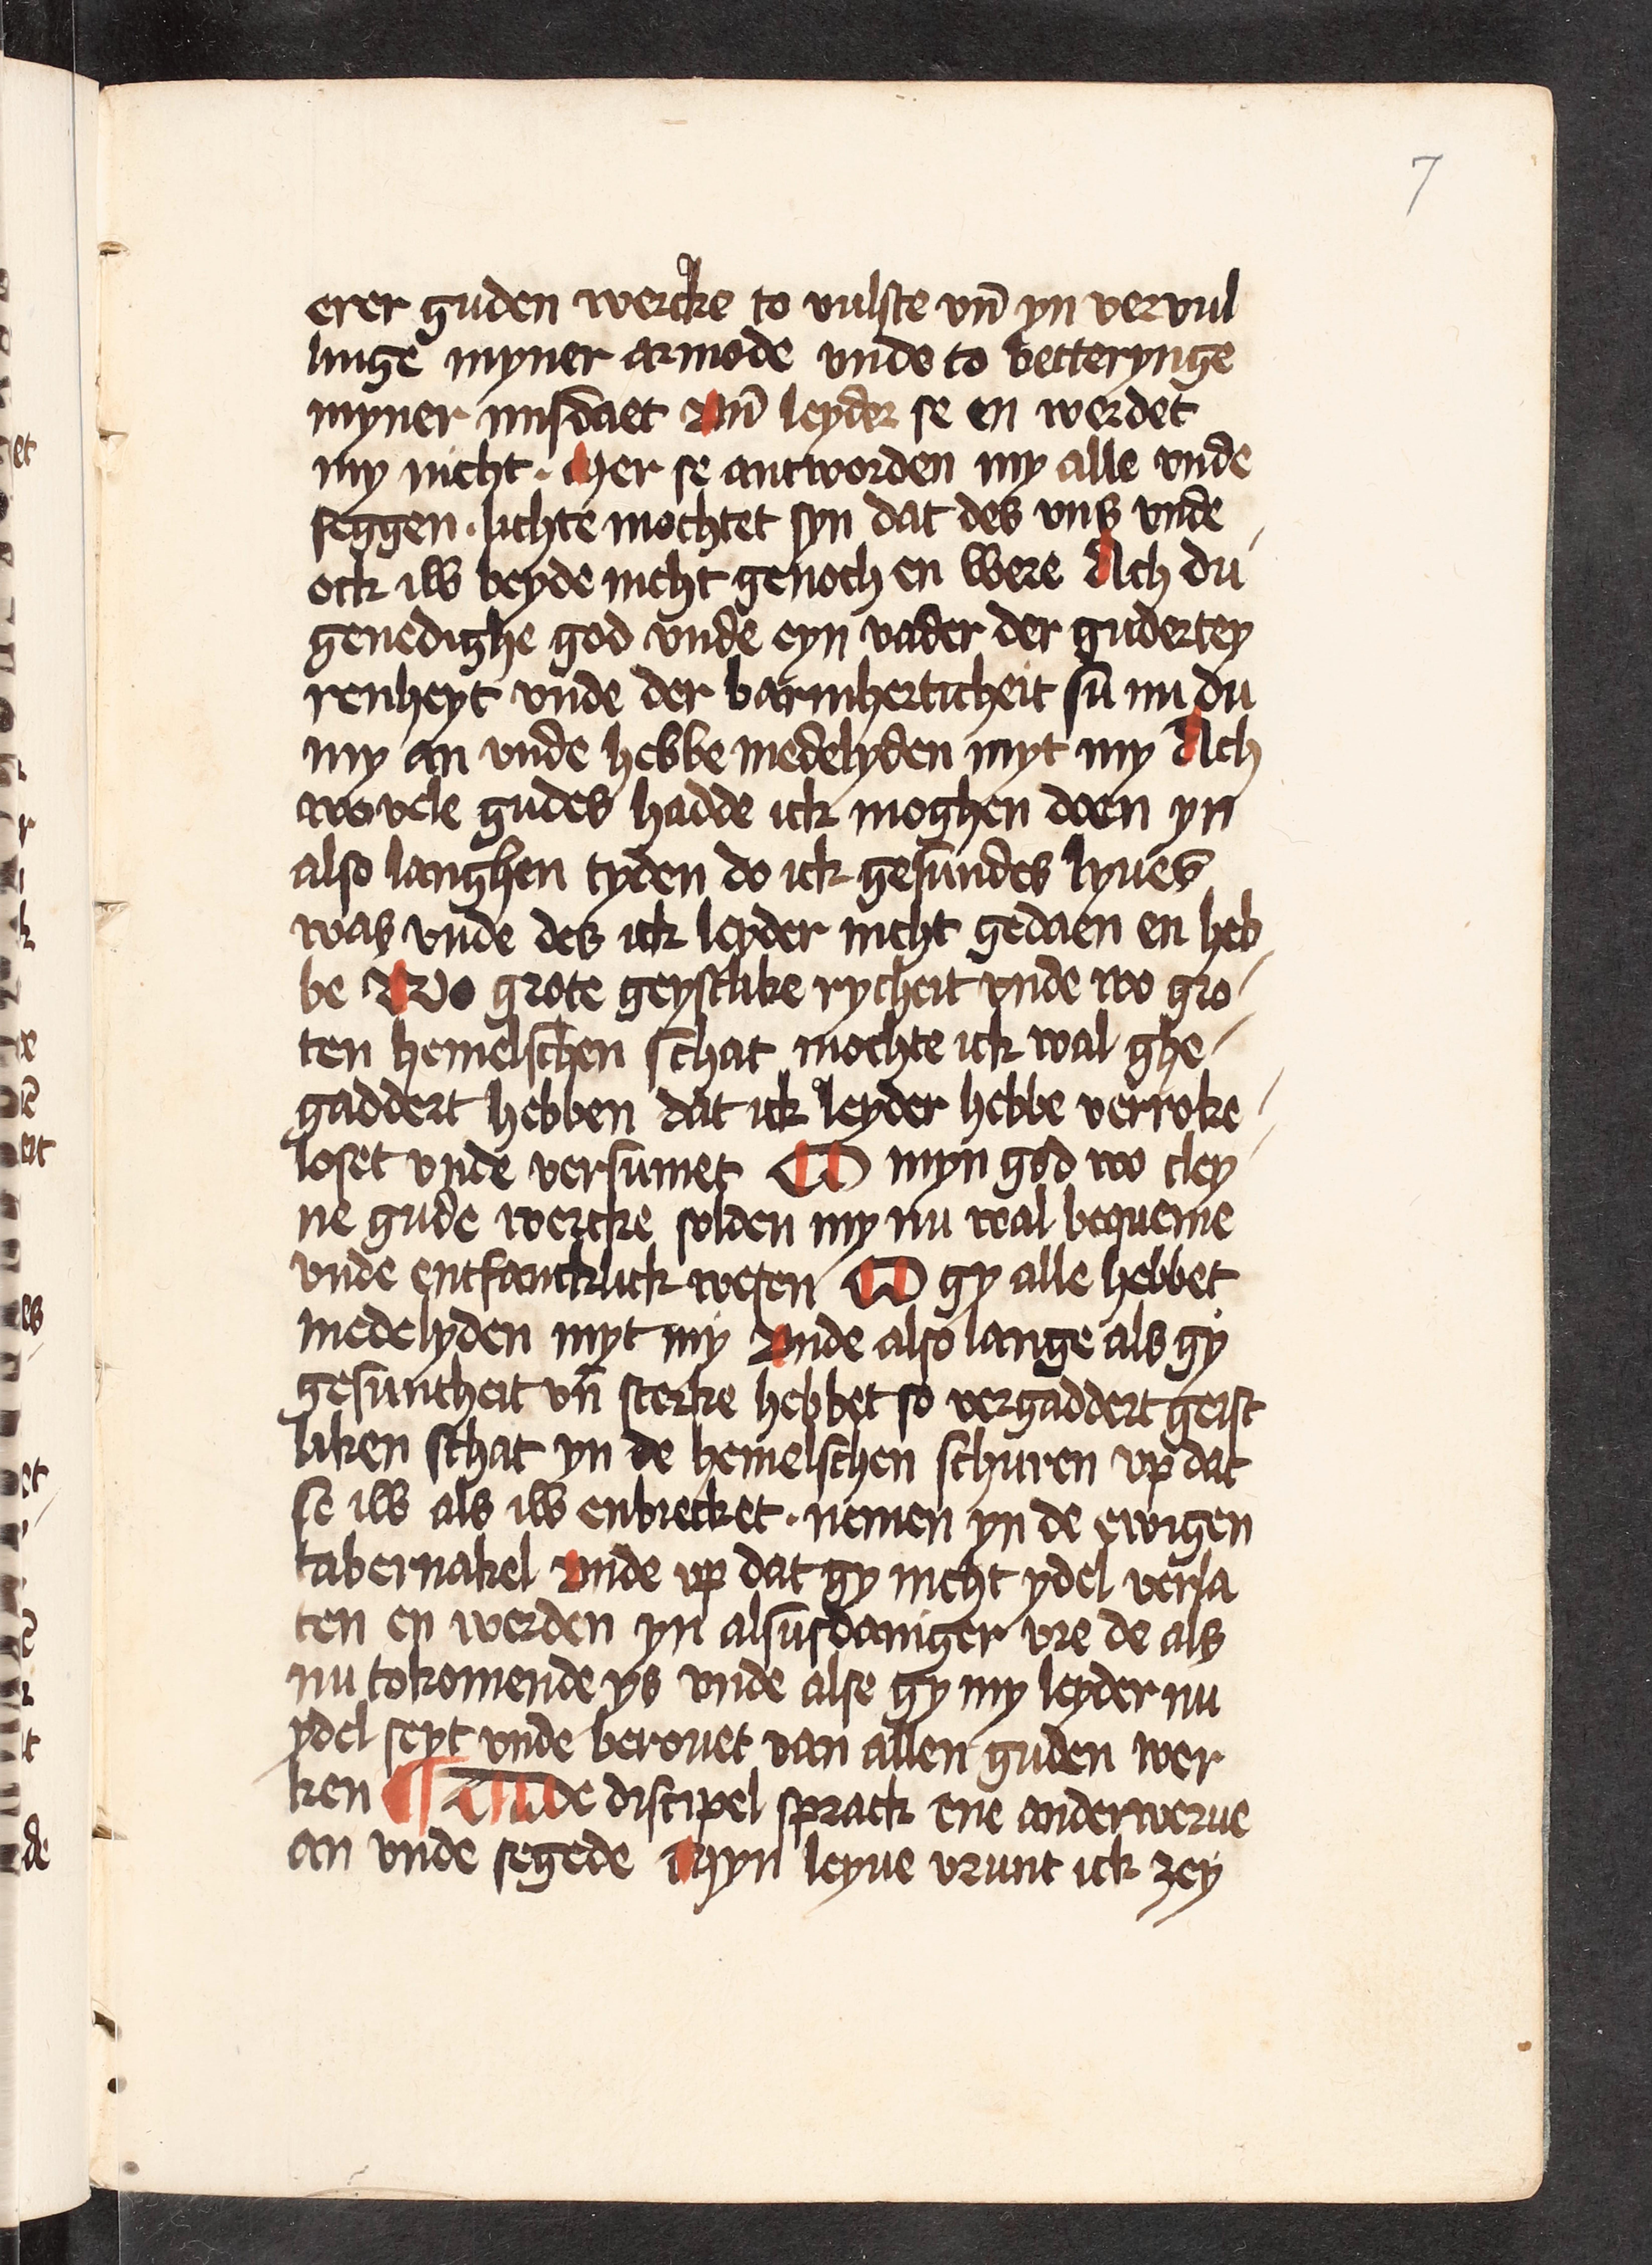 7
erer guden wercke to vulste vn̄ yn vervul
linge myner armode vnde to betterynge
myner misdaet Vn̄ leyder se en werdet
my nicht · Mer se antworden my alle vnde
seggen · lichte mochtet syn dat des vns vnde
ock iw beyde nicht genoch en were Ach du
genedighe god vnde eyn vader der gudertey
renheyt vnde der barmherticheit sū nu du
my an vnde hebbe medelyden myt my Ach
wo vele gudes hadde ick moghen doen yn
also langhen tyden do ick gesundes lyues
was vnde des ick leyder nicht gedaen en heb
be Wo grote geystlike rycheit vnde wo gro
ten hemelschen schat mochte ick wal ghe
gaddert hebben dat ick leyder hebbe verroke
loset vnde versumet O myn god wo cley
ne gude wercke solden my nu wal bequeme
vnde entfancklick wesen O gy alle hebbet
medelyden myt my Vnde also lange als gy
gesuntheit vn̄ sterke hebbet so vergaddert geist
liken schat yn de hemelschen schuren vp dat
se iw als iw enbrecket · nemen yn de ewigen
tabernakel Vnde vp dat gy nicht ydel verla
ten en werden yn alsusdaniger vre de als
nu tokomende ys vnde alse gy my leyder nu
ydel seyt vnde berouet van allen guden wer
ken ¶ De discipel sprack ene anderwerue
an vnde segede Myn leyue vrunt ick zey